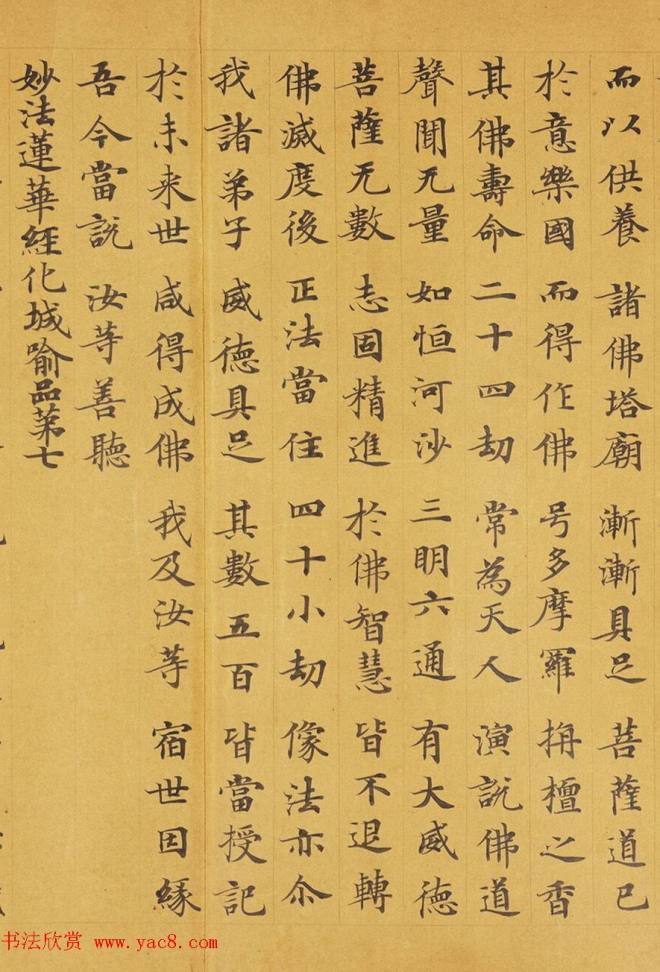 而以供養 諸佛塔廟 漸漸具足 菩薩道已
於意樂國 而得作佛 号多摩羅 栴檀之香
其佛壽命 二十四劫 常為天人 演說佛道
聲聞无量 如恒河沙 三明六通 有大威德
菩薩无數 志固精進 於佛智慧 皆不退轉
佛滅度後 正法當住 四十小劫 像法亦尒
我諸弟子 威德具足 其數五百 皆當授記
於未来世 咸得成佛 我及汝等 宿世因緣
吾今當説 汝等善聽
妙法蓮華經化城喻品第七
书法欣赏 www.yac8.com